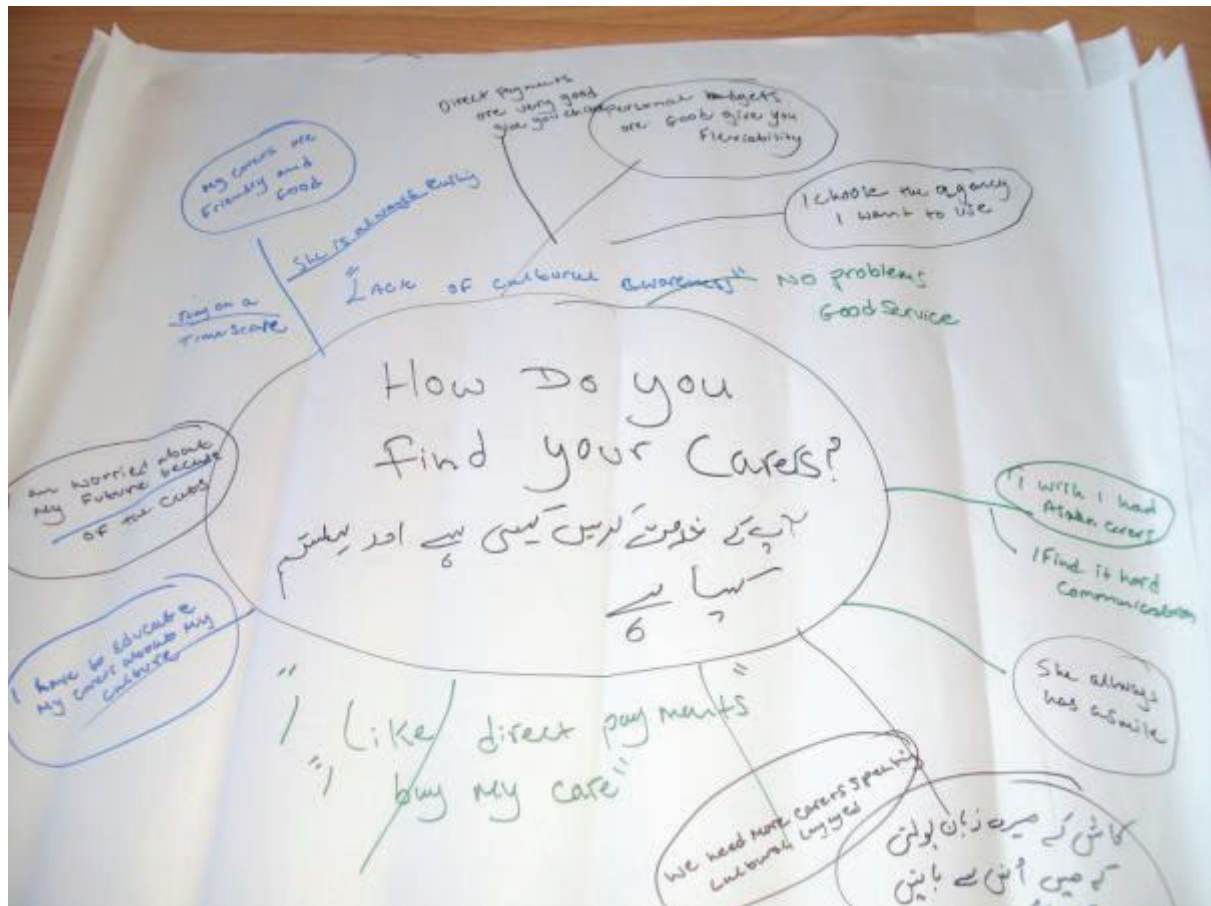 Direct payments
are very good
give you choice
personal budgets
are Good give you
Flexiability
My carers are
Friendly and
Good
She is always Rushing
I choose the agency
I want to use
"Lack of cultural awareness"
No problems
Good Service
Time scale
How Do you
Find your Carers?
آپ کے خدمت کریں کیسی ہے اور سسٹم
کیسا ہے
I am worried about
My Future because
of the cuts
I have to educate
My carers about My
culture
"I wish I had
Asian carers
I Find it hard
Communication
She always
has a smile
"I Like direct payments"
"I buy my care"
We need More carers speaking
cultural
کاش کے میری زبان بولتی
کے میں اُن سے باتیں